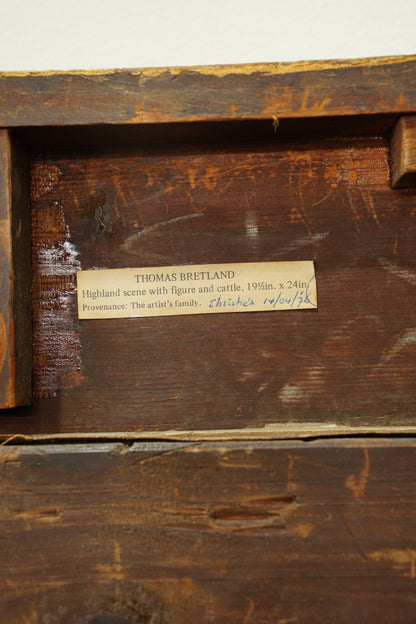 THOMAS BRETLAND
Highland scene with figure and cattle, 19½in. x 24in.
Provenance: The artist's family. Christie's 14/04/78